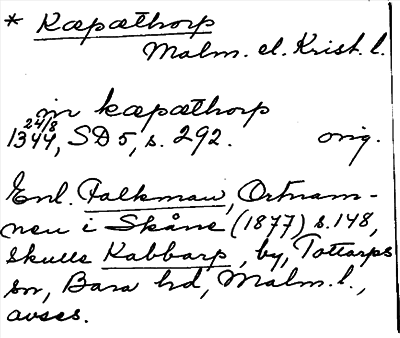 * Kæpæthorp
Malm. el. Krist. l.
in kæpæthorp
1344 24/8, SD 5, s. 292. orig.
Enl. Falkman, Ortnam-
nen i Skåne (1877) s. 148,
skulle Kabbarp, by, Tottarps
sn, Bara hd, Malm. l.,
avses.